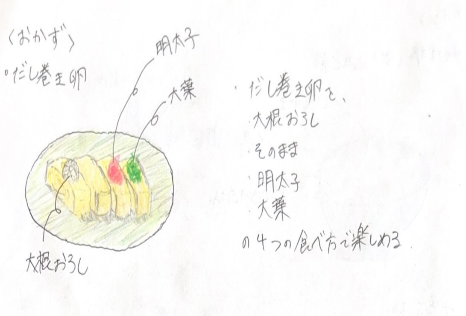 〈おかず〉
・だし巻き卵
明太子
大葉
大根おろし
・だし巻き卵を、
・大根おろし
・そのまま
・明太子
・大葉
の4つの食べ方で楽しめる.